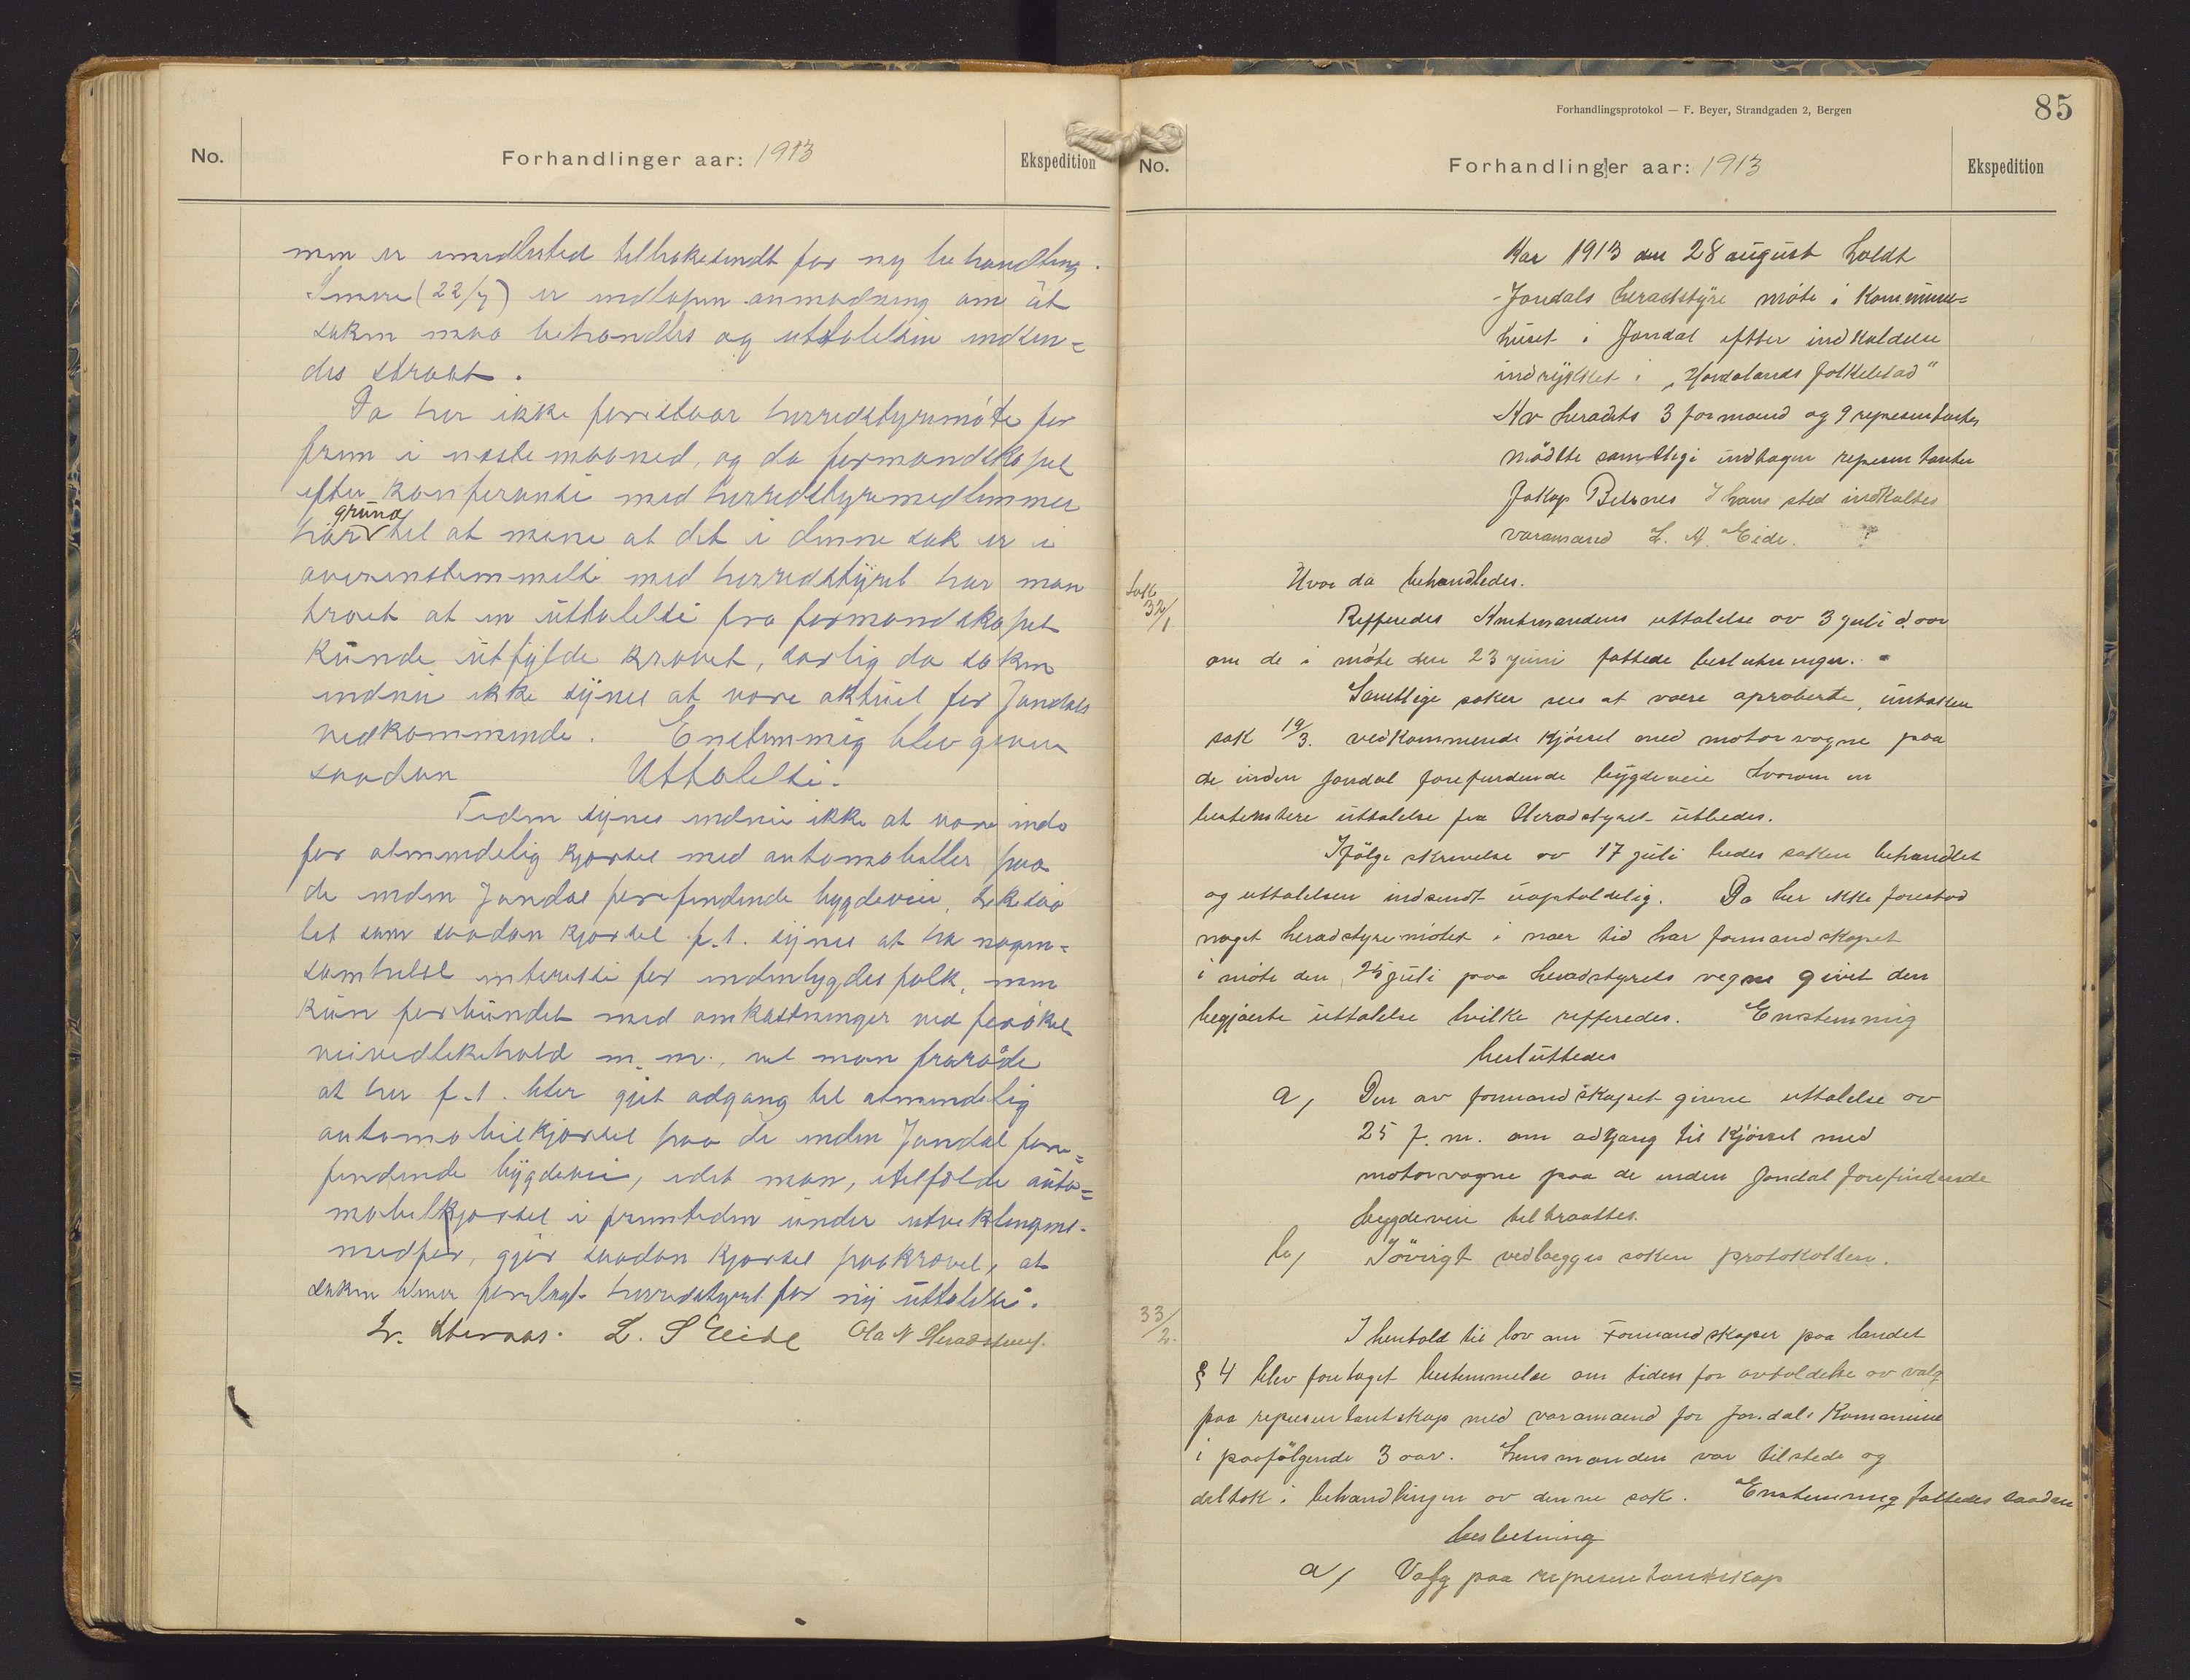 No.
Forhandlinger aar: 1913
Ekspedition
men er imidlertid tilbakesendt for ny behandling.
Senere (22/7) er indløpen anmodning om at
saken maa behandles og uttalelsen indsen=
des straks.
Da her ikke forestaar herredstyremöte för
frem i næste maaned, og da formandskapet
efter konferanse med herredstyremedlemmer
har grund til at mene at det i denne sak er i
overenstemmelse med herredstyret har man
troet at en uttalelse fra formandskapet
kunde utfylde kravet, særlig da saken
indnu ikke synes at være aktuel for Jondals
vedkommende. Enstemmig blev given
saadan Uttalelse.
Tiden synes indnu ikke at være inde
for almindelig kjørsel med automobiller paa
de inden Jondal forefindende bygdeveie, likesaa
litt som saadan kjørsel f.t. synes at ha nogen=
somhelst interesse for indenbygdes folk, men
kun forbundet med omkostninger ved forøket
veivedlikehold m. m., vil man fraraade
at her f.t. blir git adgang til almindelig
automobilkjørsel paa de inden Jondal fore=
findende bygdeveie, idet man, ifald auto=
mobilkjørsel i fremtiden under utviklingens
medför, gjør saadan kjørsel paakrævet, at
saken bliver forelagt herredstyret for ny uttalelse.
L. S Eide Ola N Heradstveit.
Forhandlingsprotokol — F. Beyer, Strandgaden 2, Bergen
85
No.
Forhandlinger aar: 1913
Ekspedition
Aar 1913 den 28 august holdt
Jondals heradstyre möte i Kommune=
huset i Jondal efter indkaldelse
indrykket i "Hordalands folkeblad"
Av heradets 3 formænd og 9 representanter
mödte samtlige undtagen representanten
Jakop Belsnes I hans sted indkaltes
varamand L. A. Eide.
Hvor da behandledes.
Sak
32/1
Refferedes Amtmandens uttalelse av 3 juli d. aar
om de i möte den 23 juni fattede beslutninger.
Samtlige saker sees at være aproberte, undtaken
sak 19/3. vedkommende kjörsel med motorvogne paa
de inden Jondal forefindende bygdeveie hvorom en
bestemtere uttalelse fra Heradstyret utbedes.
Ifölge skrivelse av 17 juli bedes saken behandlet
og uttalelsen indsendt uopholdelig. Da her ikke forestod
noget heradstyremötet i nær tid har formandskapet
i möte den 25 juli paa heradstyrets vegne givet den
begjærte uttalelse hvilke refferedes. Enstemmig
besluttedes
a, Den av formandskapet givne uttalelse av
25 f. m. om adgang til kjörsel med
motorvogne paa de inden Jondal forefindende
bygdeveie tiltraattes.
b, Iövrigt vedlægges saken protokollen.
33/2.
I henhold til lov om Formandskaper paa landet
§ 4 blev foretaget bestemmelse om tiden for avholdelse av valg
paa representantskap med varamænd for Jondals Kommune
i paafölgende 3 aar. Lensmanden var tilstede og
deltok i behandlingen av denne sak. Enstemmig fattedes saadan
beslutning
a, Valg paa representantskap